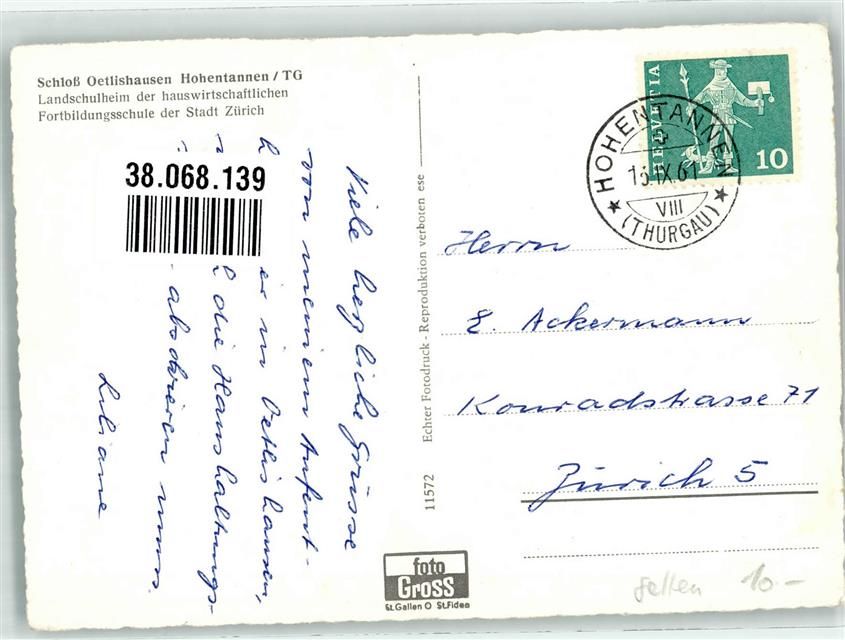 Schloß Oetlishausen Hohentannen / TG
Landschulheim der hauswirtschaftlichen
Fortbildungsschule der Stadt Zürich
38.068.139
Viele herzliche Grüsse
von meinem Aufent-
er in Oetlishausen,
die Haushaltungs-
absolvieren muss.
Liliane
11572 Echter Fotodruck - Reproduktion verboten ese
foto
Gross
St.Gallen O St.Fiden
HELVETIA
10
HOHENTANNEN
IX 61
VIII
(THURGAU)
Herrn
E. Ackermann
Konradstrasse 71
Zürich 5
selten 10.-